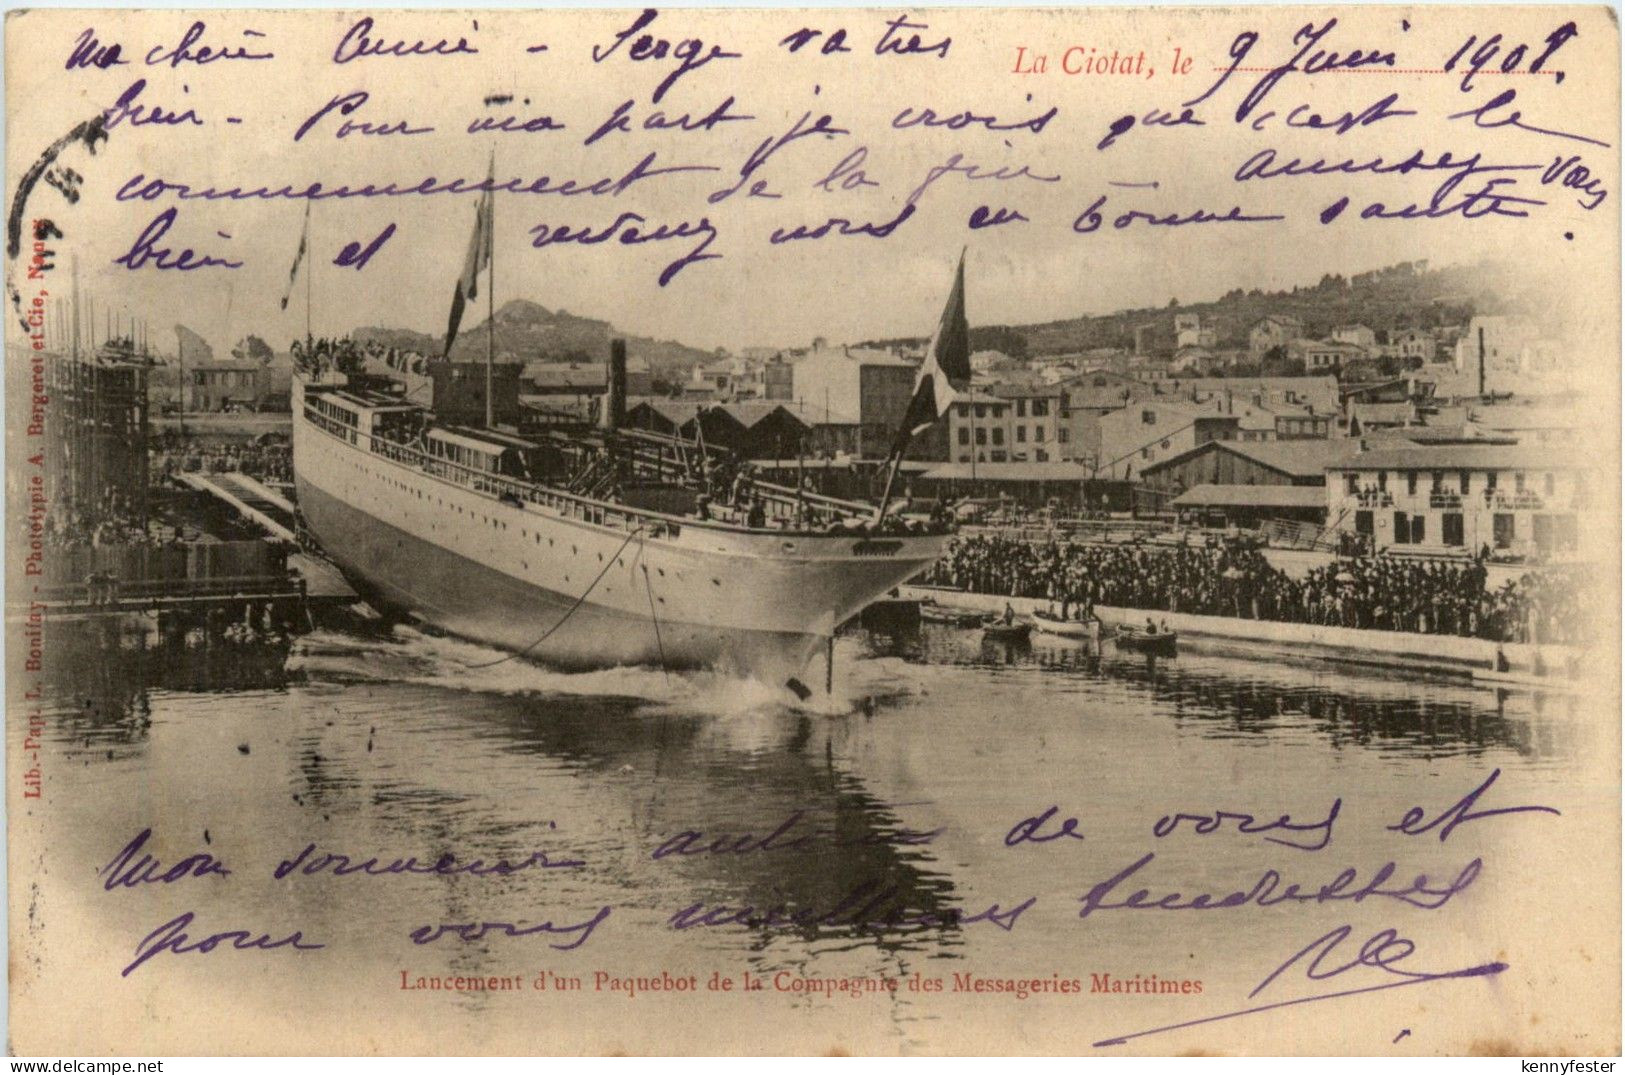 Ma chère Amie - Serge va très
La Ciotat, le 9 Juin 1901.
bien - Pour ma part je crois que c'est le
commencement de la fin - Amusez vous
bien et revenez nous en bonne santé.
Lib.-Pap. L. Bonifay - Phototypie A. Bergeret et Cie, Nancy
Mon souvenir autour de vous et
pour vous meilleures tendresses
Lancement d'un Paquebot de la Compagnie des Messageries Maritimes
kennyfester